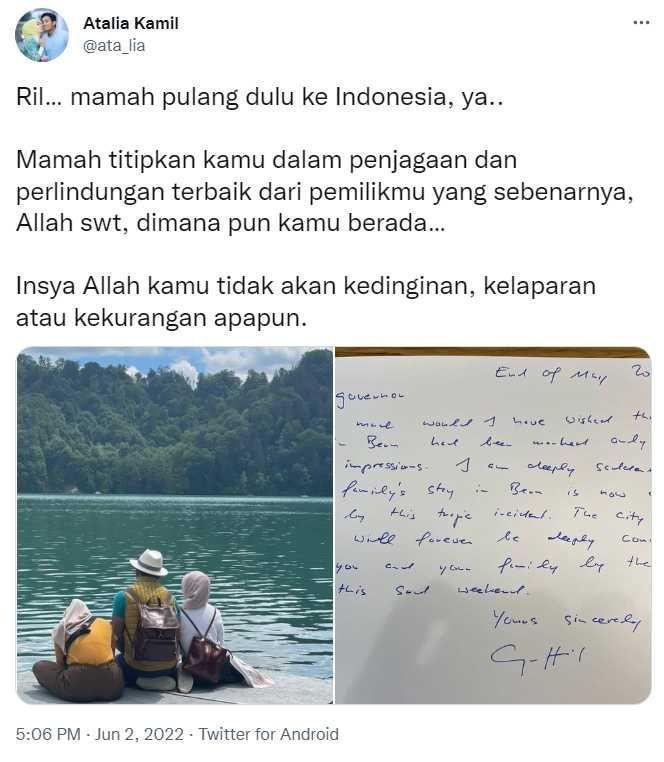 Atalia Kamil
@ata_lia
Ril... mamah pulang dulu ke Indonesia, ya..
Mamah titipkan kamu dalam penjagaan dan
perlindungan terbaik dari pemilikmu yang sebenarnya,
Allah swt, dimana pun kamu berada...
Insya Allah kamu tidak akan kedinginan, kelaparan
atau kekurangan apapun.
End of May 20
governor
much would I have wished
Bern had been marked only
impressions. I am deeply
family's stay in Bern is now
by this tragic incident. The City
will forever be deeply
you and your family by the
this sad weekend.
Yours sincerely
5:06 PM · Jun 2, 2022 · Twitter for Android